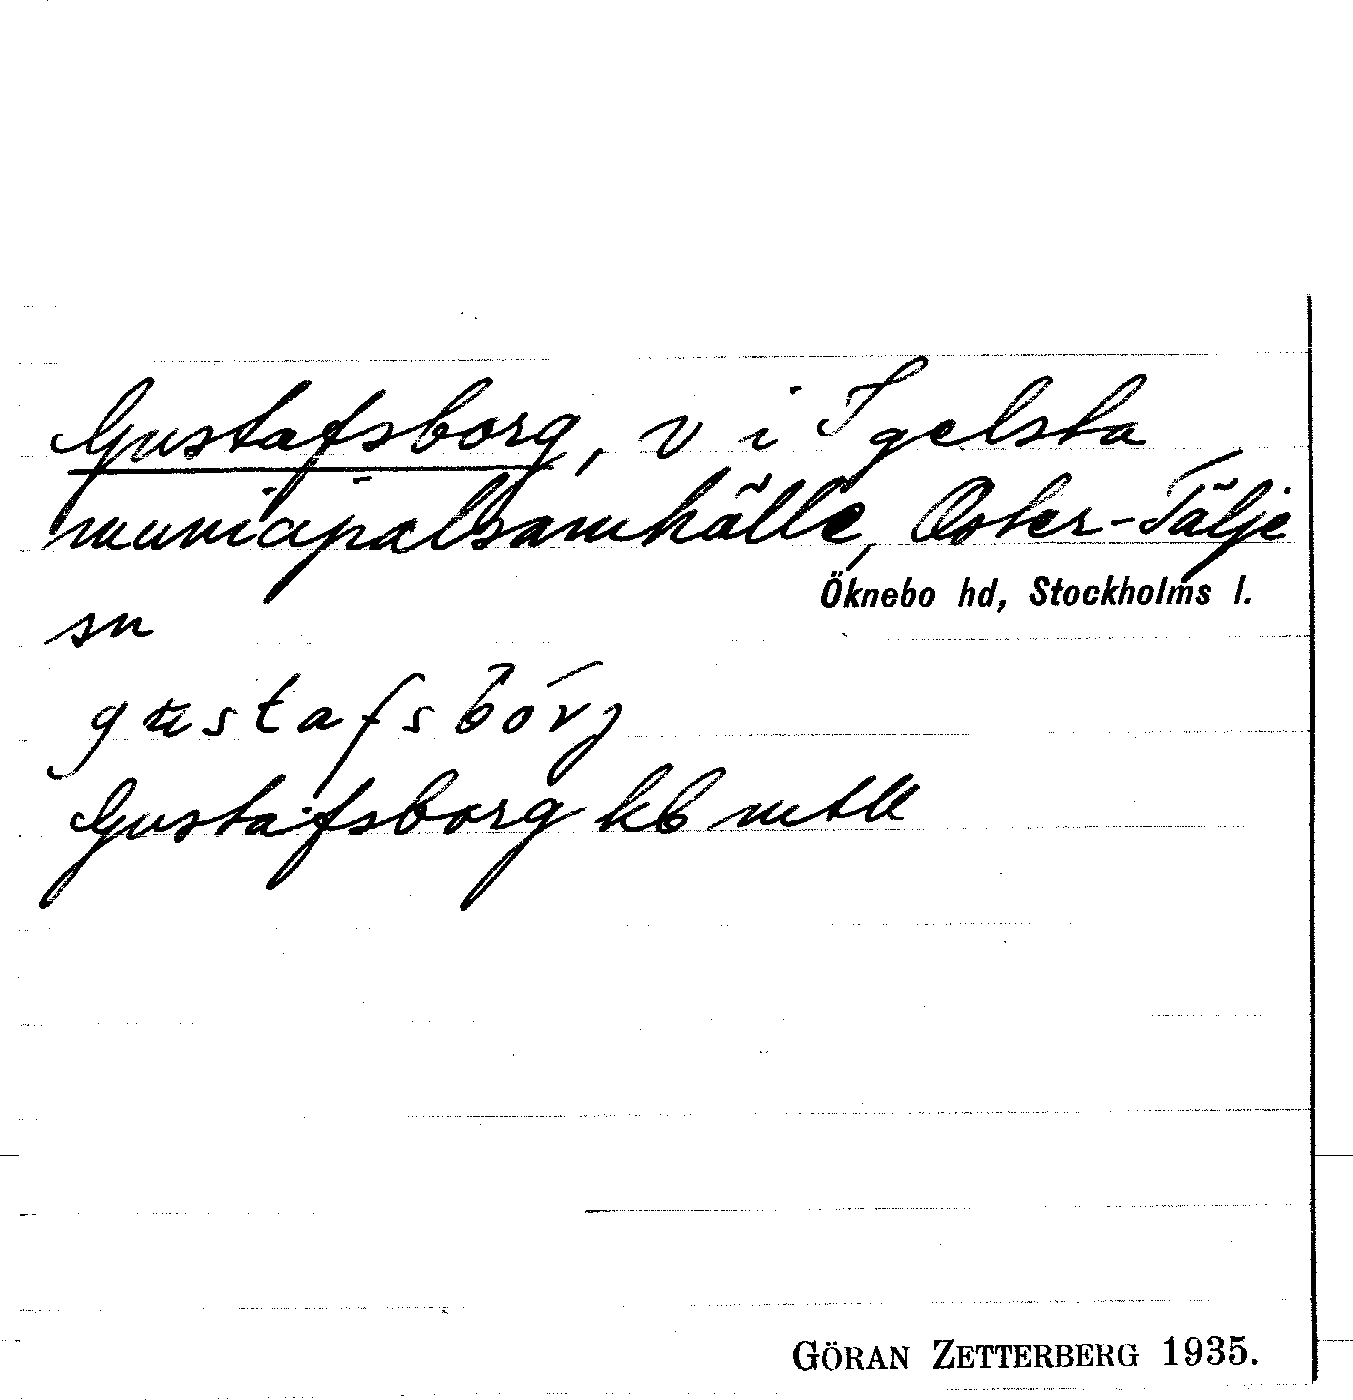 Gustafsborg, v i Igelsta
municipalsamhälle, Öster-Tälje
Öknebo hd, Stockholms l.
sn
gustafsbórj
Gustafsborg kb mtll
GÖRAN ZETTERBERG 1935.